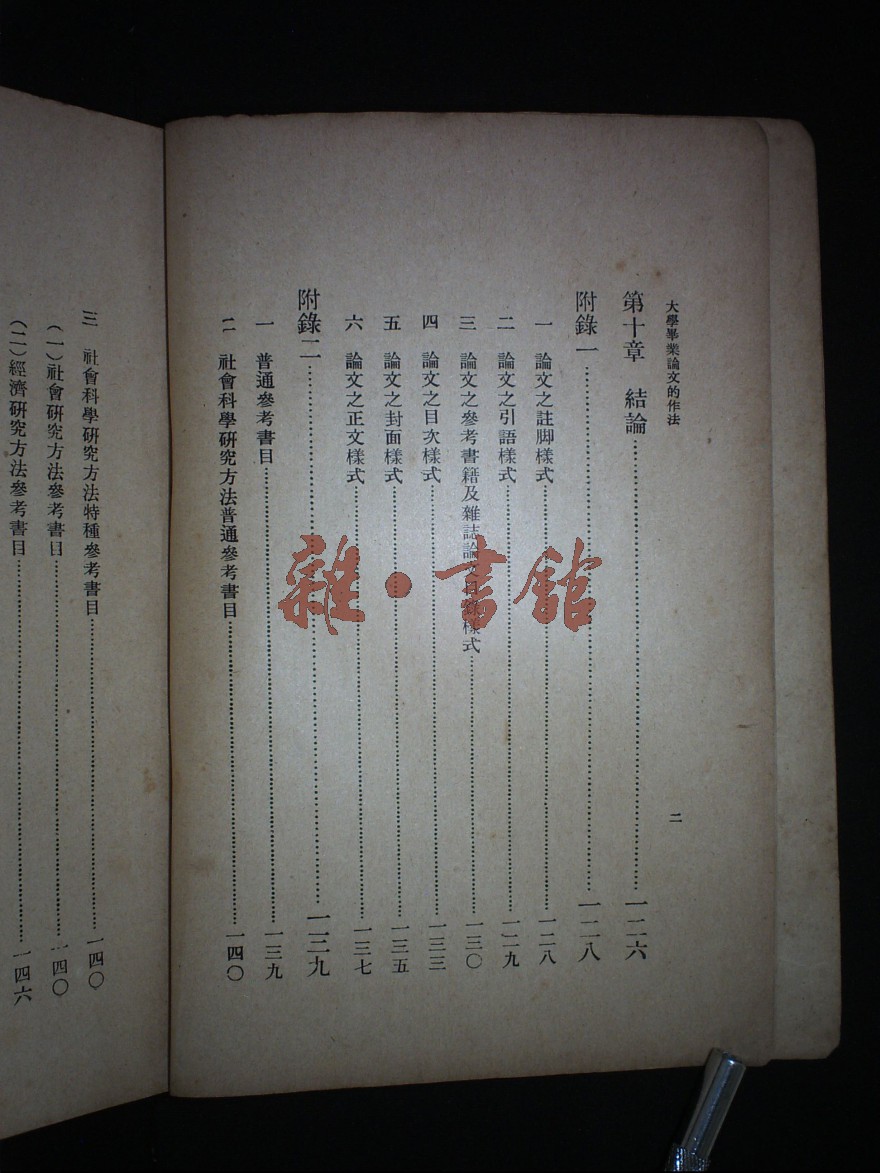 大學畢業論文的作法
二
第十章 結論……一二六
附錄一……一二八
一 論文之註脚樣式……一二八
二 論文之引語樣式……一二九
三 論文之參考書籍及雜誌論文目錄樣式……一三〇
四 論文之目次樣式……一三三
五 論文之封面樣式……一三五
六 論文之正文樣式……一三七
附錄二……一三九
一 普通參考書目……一三九
二 社會科學研究方法普通參考書目……一四〇
三 社會科學研究方法特種參考書目……一四〇
(一)社會研究方法參考書目……一四〇
(二)經濟研究方法參考書目……一四六
雜·書館